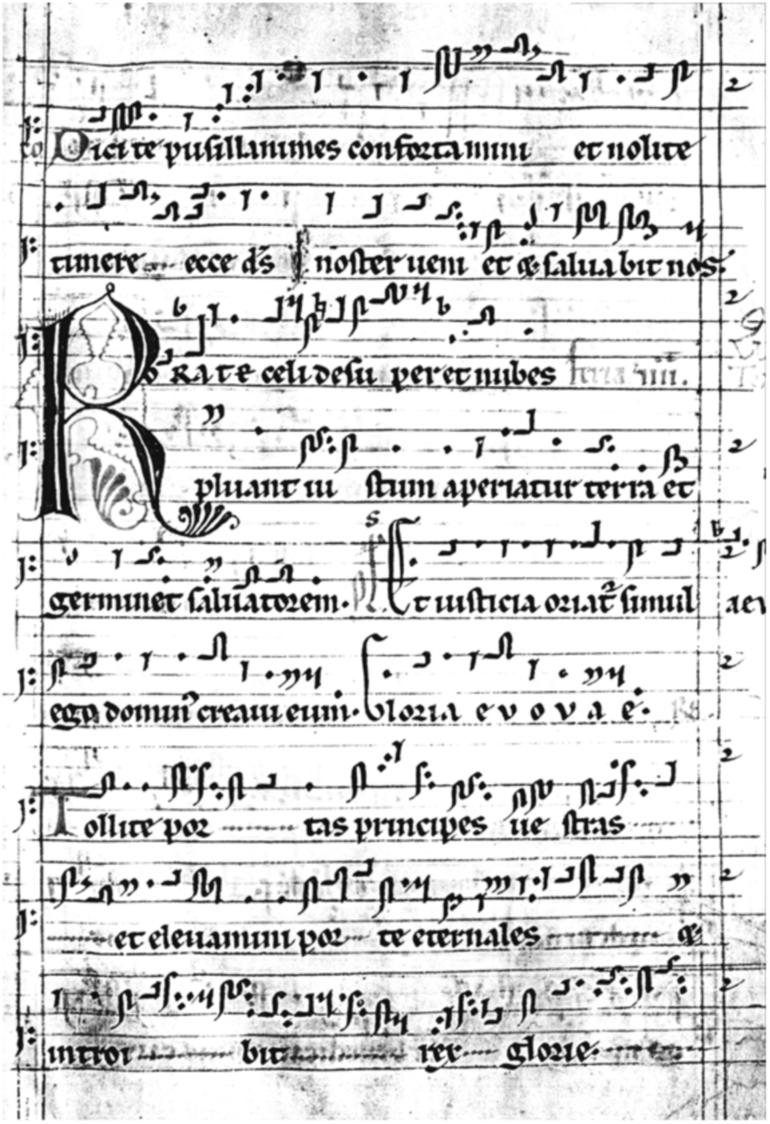 Dicite pusillanimes confortamini et nolite
timere ecce ds noster ueni et saluabit nos
RORATE celi desu per et nubes
pluant iu stum aperiatur terra et
germinet saluatorem. Et iusticia oriat simul
ego domin creaui eum. Gloria e v o v a e.
Tollite por tas principes ue stras
et eleuamini por te eternales
introi bit rex glorie.